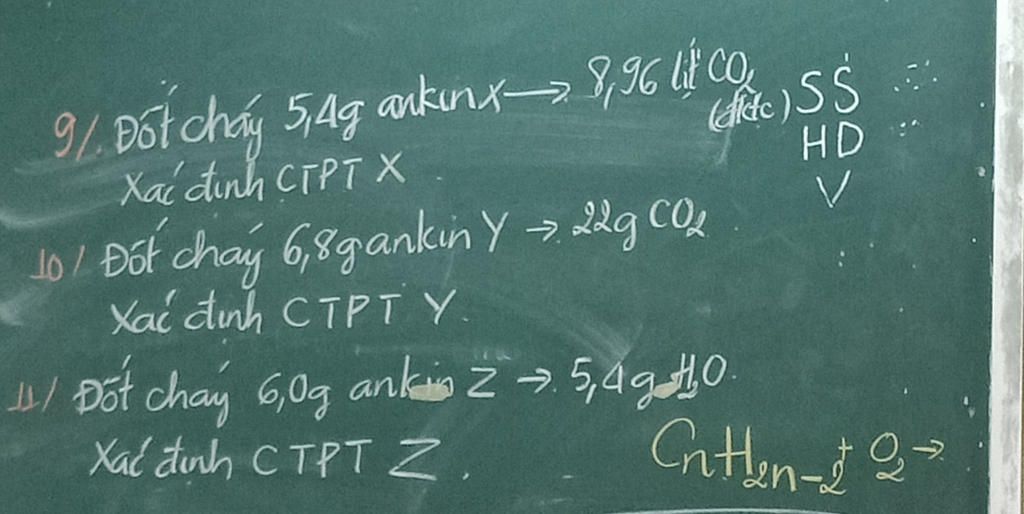 9/. Đốt cháy 5,4g ankin X → 8,96 lít CO2 (đktc)
Xác định CTPT X
10/ Đốt cháy 6,8g ankin Y → 22g CO2
Xác định CTPT Y.
11/ Đốt cháy 6,0g ankin Z → 5,4g H2O.
Xác định CTPT Z.
CnH2n-2 + O2 →
SS
HD
V